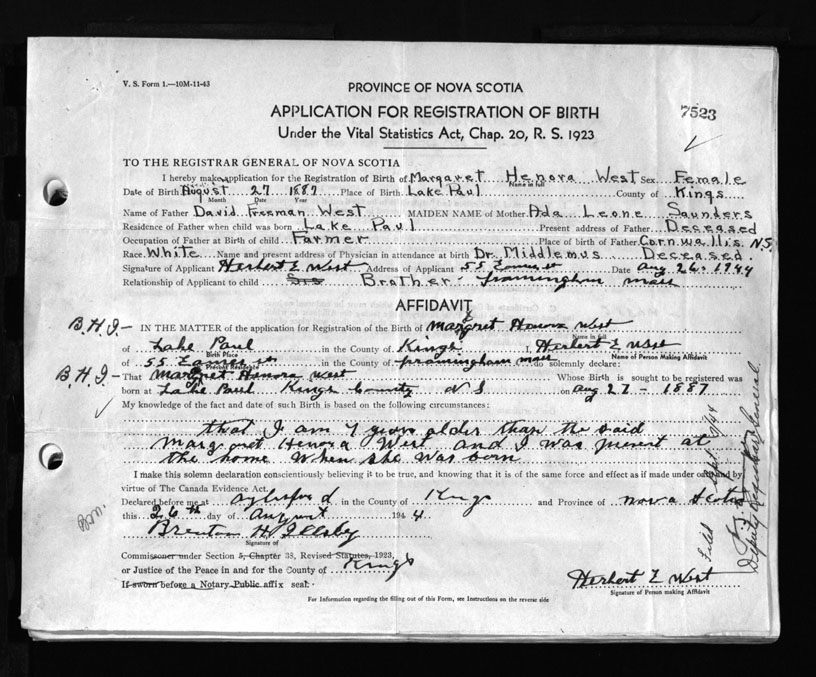 V. S. Form 1.—10M-11-43
PROVINCE OF NOVA SCOTIA
APPLICATION FOR REGISTRATION OF BIRTH
7523
Under the Vital Statistics Act, Chap. 20, R. S. 1923
TO THE REGISTRAR GENERAL OF NOVA SCOTIA
I hereby make application for the Registration of Birth of Margaret Henora West Sex Female
Name in full
Date of Birth August 27 1887 Place of Birth Lake Paul County of Kings
Month Date Year
Name of Father David Freeman West MAIDEN NAME of Mother Ada Leone Saunders
Residence of Father when child was born Lake Paul Present address of Father Deceased
Occupation of Father at Birth of child Farmer Place of birth of Father Cornwallis N.S.
Race White Name and present address of Physician in attendance at birth Dr. Middlemus Deceased.
Signature of Applicant Herbert E West Address of Applicant 55 Date Aug 26 - 1944
Relationship of Applicant to child Brother - Framingham Mass
AFFIDAVIT
B.H.I.— IN THE MATTER of the application for Registration of the Birth of Margret Honora West
Name in full
of Lake Paul in the County of Kings I, Herbert E West
Birth Place Name of Person Making Affidavit
of 55 in the County of Framingham Mass do solemnly declare:
Present Residence
B.H.I— That Margret Henora West Whose Birth is sought to be registered was
born at Lake Paul Kings County N S on Aug 27 - 1887
My knowledge of the fact and date of such Birth is based on the following circumstances:
that I am 7 years older than the said
Margret Henora West and I was present at
the home when she was born
I make this solemn declaration conscientiously believing it to be true, and knowing that it is of the same force and effect as if made under oath and by
virtue of The Canada Evidence Act.
Declared before me at Aylesford in the County of Kings and Province of Nova Scotia
this 26th day of August 1944
Brenton H Illsley
Signature of
Commissoner under Section 5, Chapter 38, Revised Statutes, 1923,
or Justice of the Peace in and for the County of Kings
If sworn before a Notary Public affix seal.
Herbert E West
Signature of Person making Affidavit
For Information regarding the filling out of this Form, see Instructions on the reverse side
Deputy Registrar General